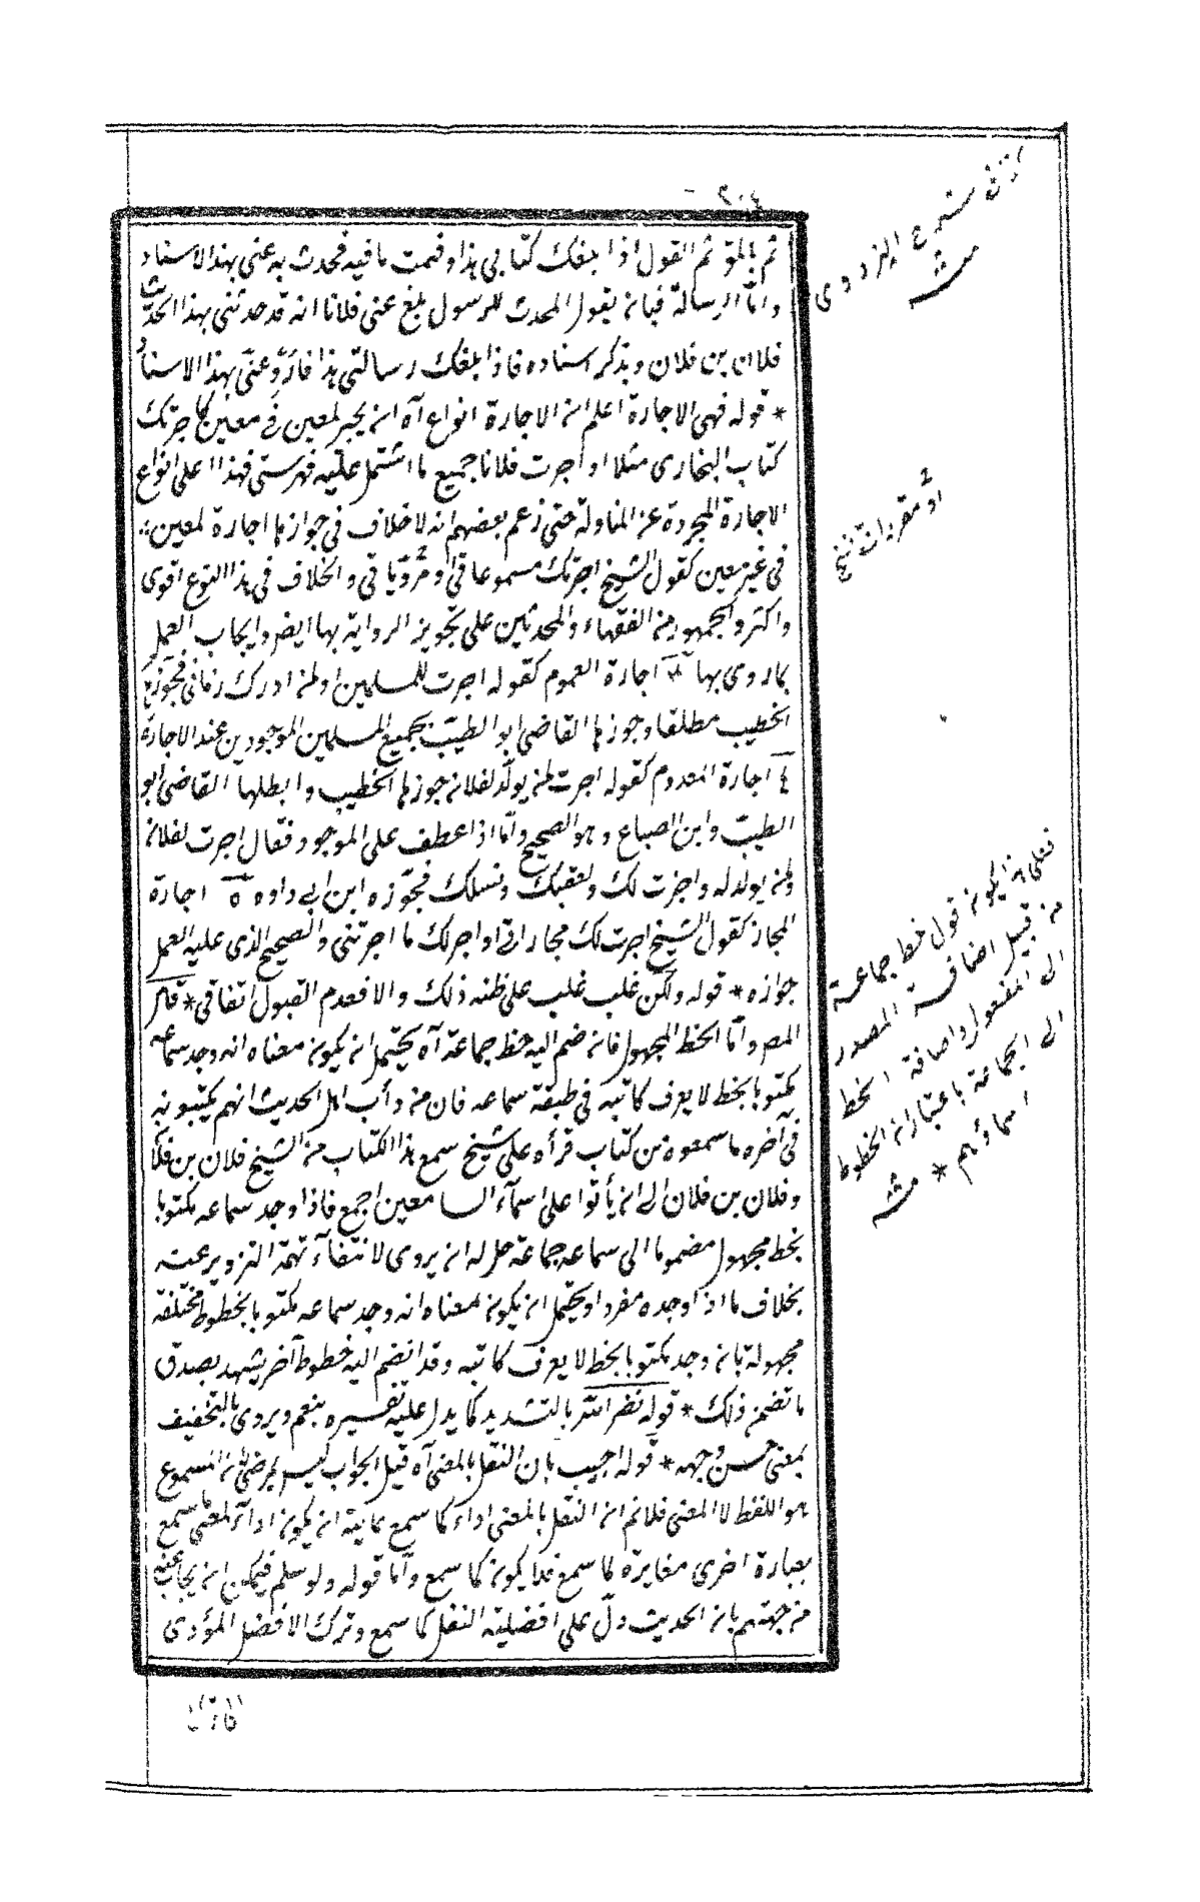 ٢٠٤
ثم بالمتن ثم القول اذا بلغك كتابى هذا وفهمت ما فيه فحدث به عنى بهذا الاسناد
واما الرسالة فبان يقول المحدث للرسول بلغ عنى فلانا انه قد حدثنى بهذا الحديث
فلان بن فلان ويذكر اسناده فاذا بلغك رسالتى هذا فاروه عنى بهذا الاسناد
* قوله فهى الاجازة اعلم ان الاجازة انواع آ ان يجيز لمعين فى معين كاجزتك
كتاب البخارى مثلا او اجزت فلانا جميع ما اشتمل عليه فهرستى فهذا اعلى انواع
الاجازة المجردة عن المناولة حتى زعم بعضهم انه لا خلاف فى جوازها اجازة لمعين
فى غير معين كقول الشيخ اجزتك مسموعاتى او مروياتى والخلاف فى هذا النوع اقوى
واكثر والجمهور من الفقهاء والمحدثين على تجويز الرواية بها ايضا وايجاب العمل
بما روى بها ٣ اجازة العموم كقوله اجزت للمسلمين او لمن ادرك زمانى فجوزه
الخطيب مطلقا وجوزها القاضى ابو الطيب لجميع المسلمين الموجودين عند الاجازة
٤ اجازة المعدوم كقوله اجزت لمن يولد لفلان جوزها الخطيب وابطلها القاضى ابو
الطيب وابن الصباغ وهو الصحيح واما اذا عطف على الموجود فقال اجزت لفلان
ولمن يولد له واجزت لك ولعقبك ونسلك فجوزه ابن ابى داود ٥ اجازة
المجاز كقول الشيخ اجزت لك مجازاتى او اجزلك ما اجزتنى والصحيح الذى عليه العمل
جوازه * قوله ولكن غلب غلب على ظنه ذلك والا فعدم القبول اتفاقى * قال
المص واما الخط المجهول فان ضم اليه خط جماعة آه يحتمل ان يكون معناه انه وجد سماعه
مكتوبا بخط لا يعرف كاتبه فى طبقة سماعه فان من دأب اهل الحديث انهم يكتبون
فى آخره ما سمعوه من كتاب قرأه على شيخ سمع هذا الكتاب من الشيخ فلان بن فلان
وفلان بن فلان الى ان يأتوا على اسماء السامعين اجمع فاذا وجد سماعه مكتوبا
بخط مجهول مضموما الى سماعه جماعة حل له ان يروى لانتفاء تهمة التزوير عنه
بخلاف ما اذا وجده مفردا ويحتمل ان يكون معناه انه وجد سماعه مكتوبا بخطوط مختلفة
مجهولة بان وجد مكتوبا بخط لا يعرف كاتبه وقد انضم اليه خطوط آخر يشهد بصدق
ما تضمن ذلك * قوله نضر الله بالتشديد كما يدل عليه تفسيره بنعم ويروى بالتخفيف
بمعنى حسن وجهه * قوله اجيب بان النقل بالمعنى آه قيل الجواب ليس بمرضى لان المسموع
هو اللفظ لا المعنى فلا نم ان النقل بالمعنى اداء كما سمع غايته ان يكون اداء لمعنى ما سمع
بعبارة اخرى مغايرة لما سمع فلا يكون كما سمع واما قوله ولو سلم فيمكن ان يجاب عنه
من جهتهم بان الحديث دل على افضلية النقل كما سمع وترك الافضل المؤدى
شرح البزدوى
منه
او مقرواتى نسخ
فعلى هذا يكون قول خط جماعة
من قبيل اضافة المصدر
الى المفعول واضافة الخط
الى الجماعة باعتبار ان الخطوط
اسماؤهم * منه